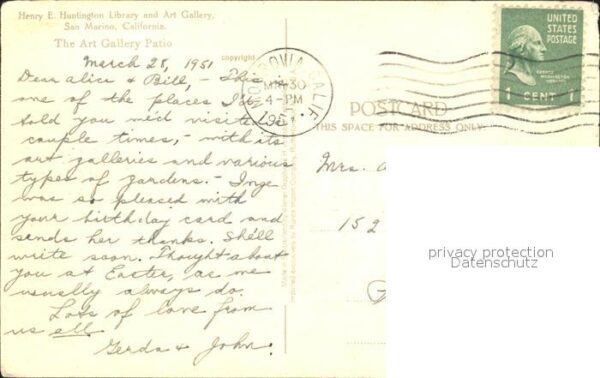 Henry E. Huntington Library and Art Gallery,
San Marino, California.
The Art Gallery Patio
March 28, 1951
Dear Alice & Bill, - This is
one of the places I've
told you we'd visited
couple times, - with its
art galleries and various
types of gardens. - Inge
was so pleased with
your birthday card and
sends her thanks. She'll
write soon. Thought about
you at Easter, as we
usually always do.
Lots of love from
us all
Gerda & John.
copyright
MONROVIA, CALIF.
MAR 30
4-PM
1951
UNITED
STATES
POSTAGE
1 CENT 1
POSTCARD
THIS SPACE FOR ADDRESS ONLY
Mrs. A
152
privacy protection
Datenschutz